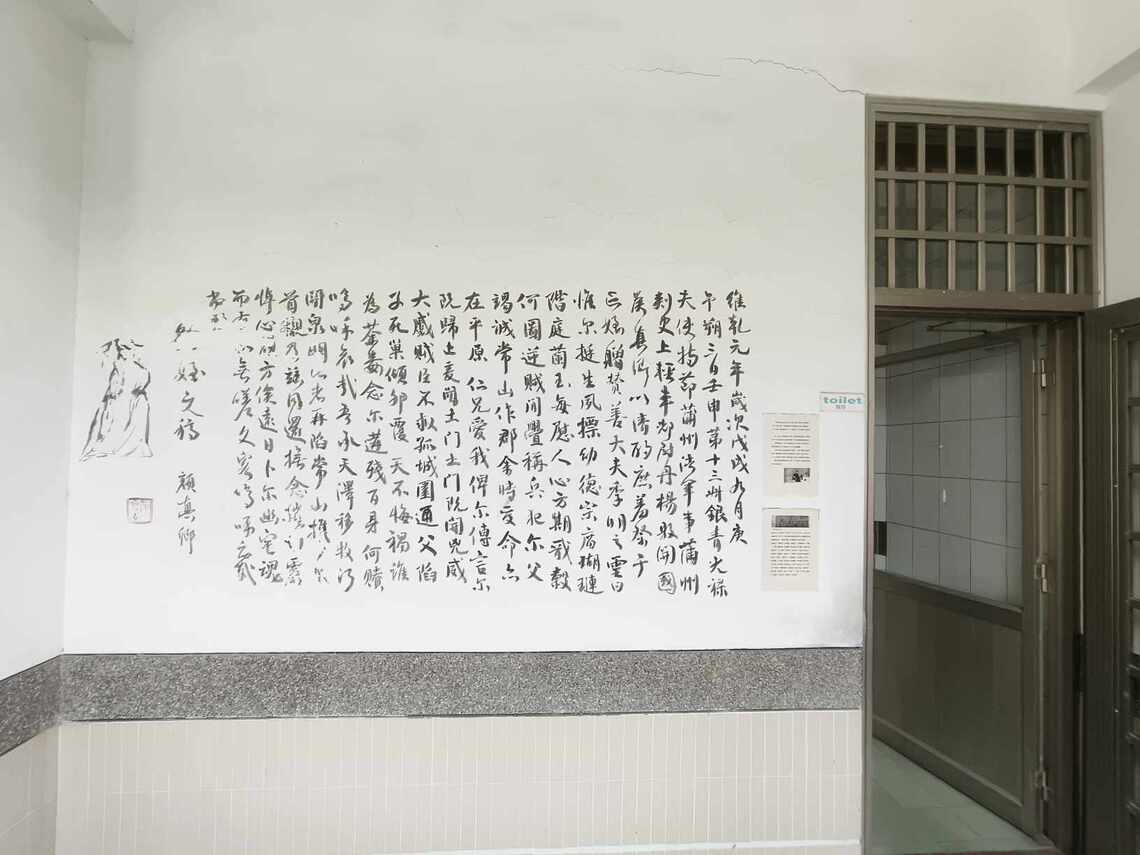 維乾元年歲次戊戌九月庚
午朔三日壬申第十三叔銀青光祿
夫使持節蒲州諸軍事蒲州
刺史上輕車都尉丹楊縣開國
侯真卿以清酌庶羞祭于
亡姪贈贊善大夫季明之靈曰
惟爾挺生夙標幼德宗廟瑚璉
階庭蘭玉每慰人心方期戩穀
何圖逆賊間釁稱兵犯爾父
竭誠常山作郡余時受命亦
在平原仁兄愛我俾爾傳言爾
既歸止爰開土門土門既開兇威
大蹙賊臣不救孤城圍逼父陷
子死巢傾卵覆天不悔禍誰
為荼毒念爾遘殘百身何贖
嗚呼哀哉吾承天澤移牧河
關泉明比者再陷常山攜爾
首櫬及茲同還撫念摧切震
悼心顏方俟遠日卜爾幽宅魂
而知無嗟久客嗚呼哀哉
尚
姪文稿 顏真卿
toilet